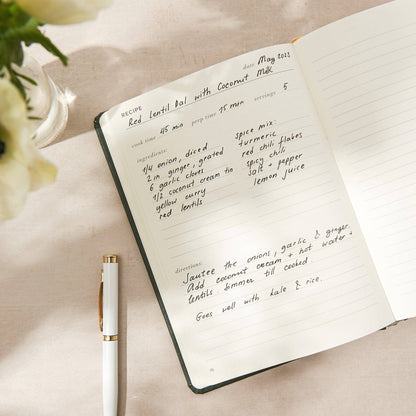 date May 2023
RECIPE
Red Lentil Dal with Coconut Milk
cook time 45 min prep time 15 min servings 5
ingredients:
1/4 onion, diced
2 in ginger, grated
6 garlic cloves
1/2 coconut cream tin
yellow curry
red lentils
spice mix:
turmeric
red chili flakes
spicy chili
salt + pepper
lemon juice
directions:
Sautee the onions, garlic & ginger.
Add coconut cream + hot water +
lentils. Simmer till cooked.
Goes well with kale & rice.